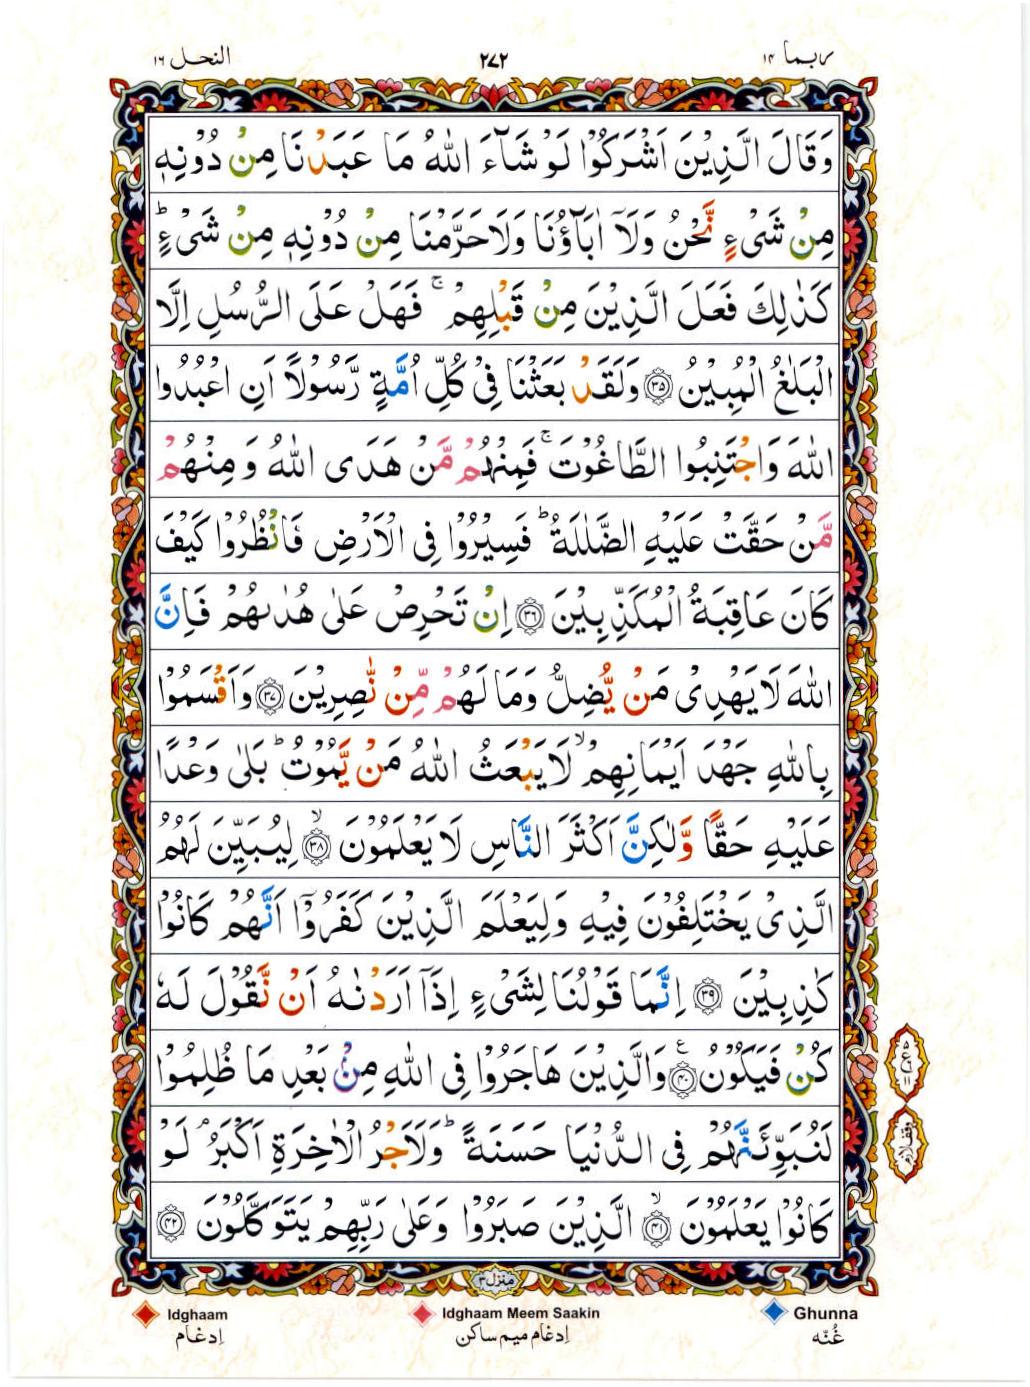 النحل ١٦ ٢٧٢ ربما ١٤
وَقَالَ الَّذِيْنَ اَشْرَكُوْا لَوْ شَآءَ اللّٰهُ مَا عَبَدْنَا مِنْ دُوْنِهٖ
مِنْ شَیْءٍ نَّحْنُ وَلَاۤ اٰبَآؤُنَا وَلَا حَرَّمْنَا مِنْ دُوْنِهٖ مِنْ شَیْءٍ ؕ
كَذٰلِكَ فَعَلَ الَّذِيْنَ مِنْ قَبْلِهِمْ ۚ فَهَلْ عَلَى الرُّسُلِ اِلَّا
الْبَلٰغُ الْمُبِيْنُ ۝٣٥ وَلَقَدْ بَعَثْنَا فِیْ كُلِّ اُمَّةٍ رَّسُوْلًا اَنِ اعْبُدُوا
اللّٰهَ وَاجْتَنِبُوا الطَّاغُوْتَ ۚ فَمِنْهُمْ مَّنْ هَدَى اللّٰهُ وَمِنْهُمْ
مَّنْ حَقَّتْ عَلَيْهِ الضَّلٰلَةُ ؕ فَسِيْرُوْا فِى الْاَرْضِ فَانْظُرُوْا كَيْفَ
كَانَ عَاقِبَةُ الْمُكَذِّبِيْنَ ۝٣٦ اِنْ تَحْرِصْ عَلٰى هُدٰىهُمْ فَاِنَّ
اللّٰهَ لَا يَهْدِیْ مَنْ يُّضِلُّ وَمَا لَهُمْ مِّنْ نّٰصِرِيْنَ ۝٣٧ وَاَقْسَمُوْا
بِاللّٰهِ جَهْدَ اَيْمَانِهِمْ ۙ لَا يَبْعَثُ اللّٰهُ مَنْ يَّمُوْتُ ؕ بَلٰى وَعْدًا
عَلَيْهِ حَقًّا وَّلٰكِنَّ اَكْثَرَ النَّاسِ لَا يَعْلَمُوْنَ ۙ۝٣٨ لِيُبَيِّنَ لَهُمُ
الَّذِیْ يَخْتَلِفُوْنَ فِيْهِ وَلِيَعْلَمَ الَّذِيْنَ كَفَرُوْۤا اَنَّهُمْ كَانُوْا
كٰذِبِيْنَ ۝٣٩ اِنَّمَا قَوْلُنَا لِشَیْءٍ اِذَآ اَرَدْنٰهُ اَنْ نَّقُوْلَ لَهٗ
كُنْ فَيَكُوْنُ ۧ۝٤٠ وَالَّذِيْنَ هَاجَرُوْا فِى اللّٰهِ مِنْۢ بَعْدِ مَا ظُلِمُوْا
لَنُبَوِّئَنَّهُمْ فِى الدُّنْيَا حَسَنَةً ؕ وَلَاَجْرُ الْاٰخِرَةِ اَكْبَرُ ۘ لَوْ
كَانُوْا يَعْلَمُوْنَ ۙ۝٤١ الَّذِيْنَ صَبَرُوْا وَعَلٰى رَبِّهِمْ يَتَوَكَّلُوْنَ ۝٤٢
٥ ع ١١
وقف لازم
منزل ٣
Idghaam Idghaam Meem Saakin Ghunna
اِدغام اِدغام میم ساکن غُنّه